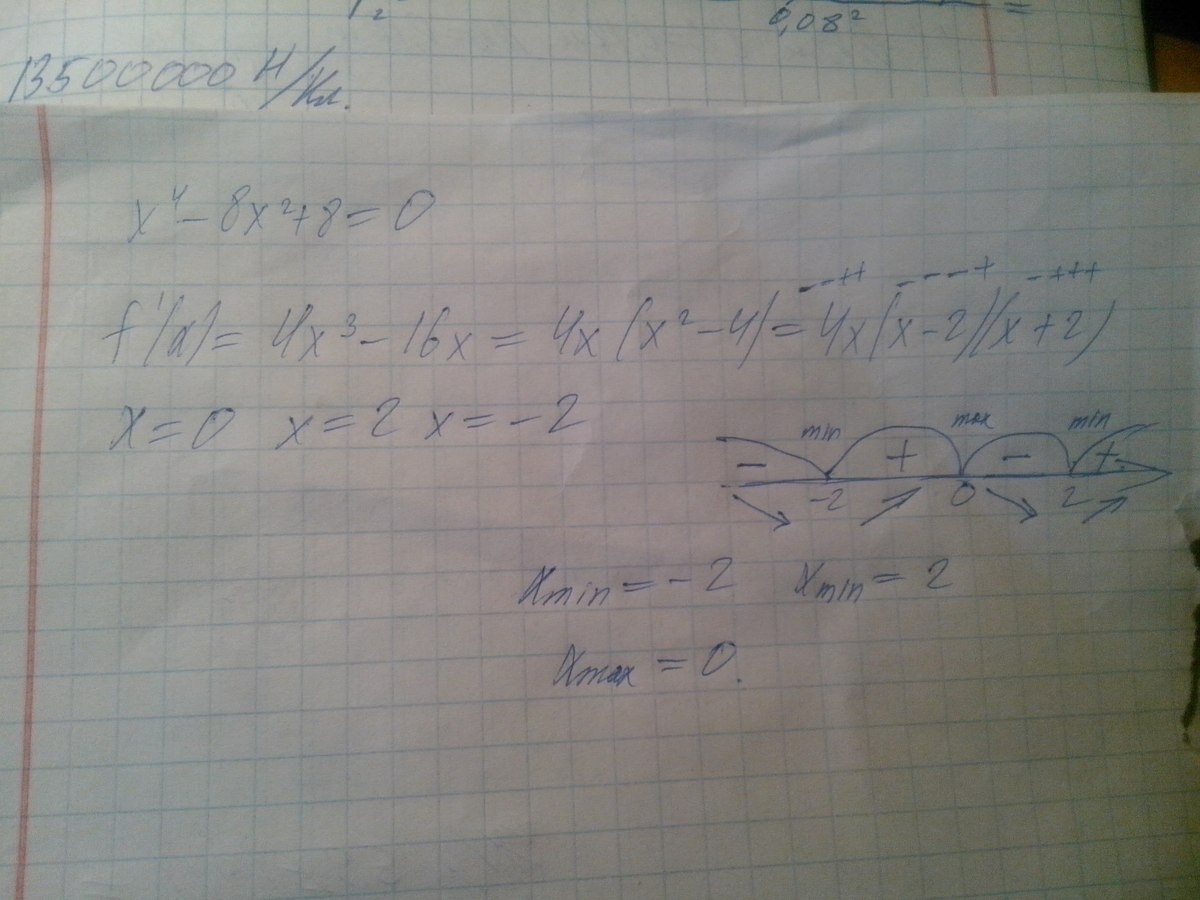 0,08² =
13500000 Н/Кл.
x⁴ - 8x² + 8 = 0
- - + +   - - - +   - + + +
f'(x) = 4x³ - 16x = 4x(x² - 4) = 4x(x - 2)(x + 2)
x = 0   x = 2   x = -2
min max min
- + - +
-2 0 2
x min = -2   x min = 2
x max = 0.